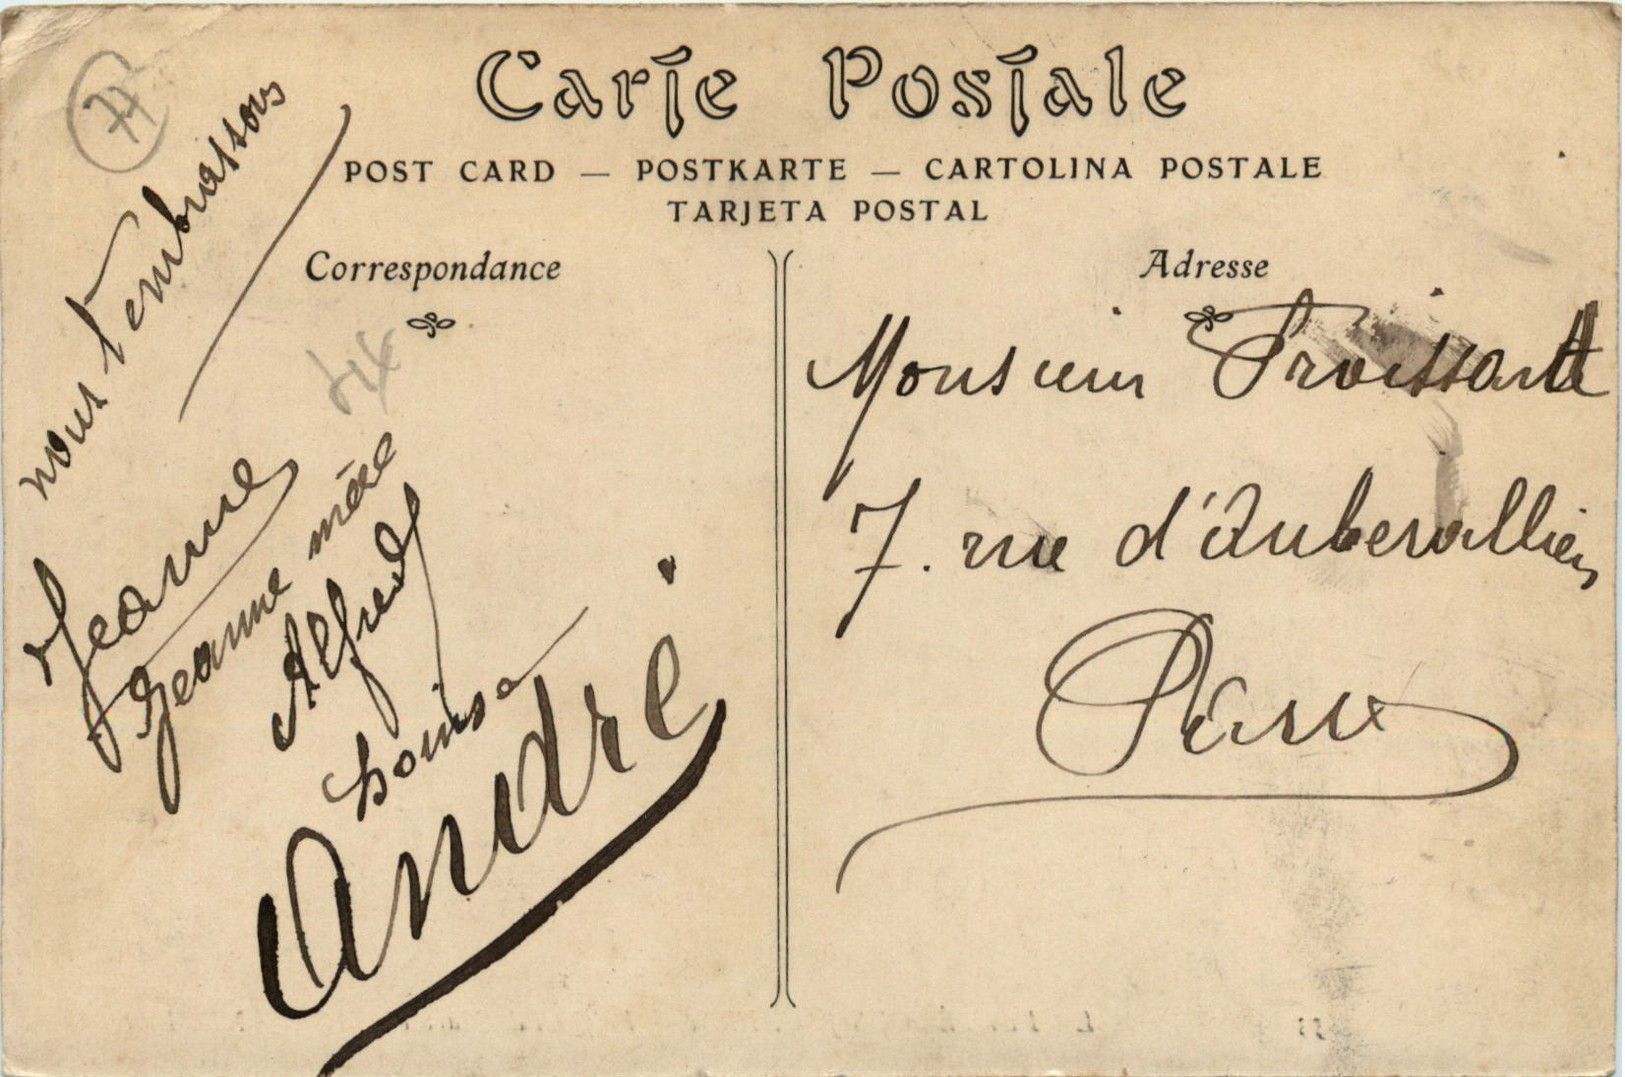 77
Carte Postale
POST CARD — POSTKARTE — CARTOLINA POSTALE
TARJETA POSTAL
Correspondance
nous t'embrassons
Jeanne
Jeanne mère
Alfred
Louisa
André
Adresse
Monsieur Froissart
7. rue d'Aubervalliers
Paris